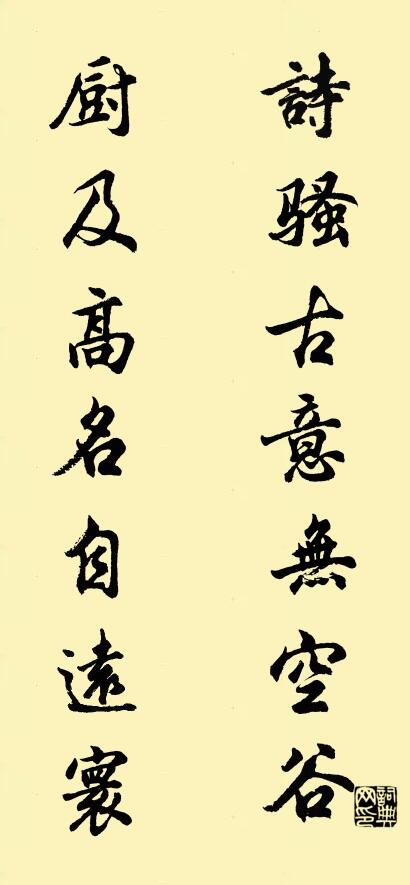 詩騷古意無空谷
厨及高名自遠寰
詞典网印